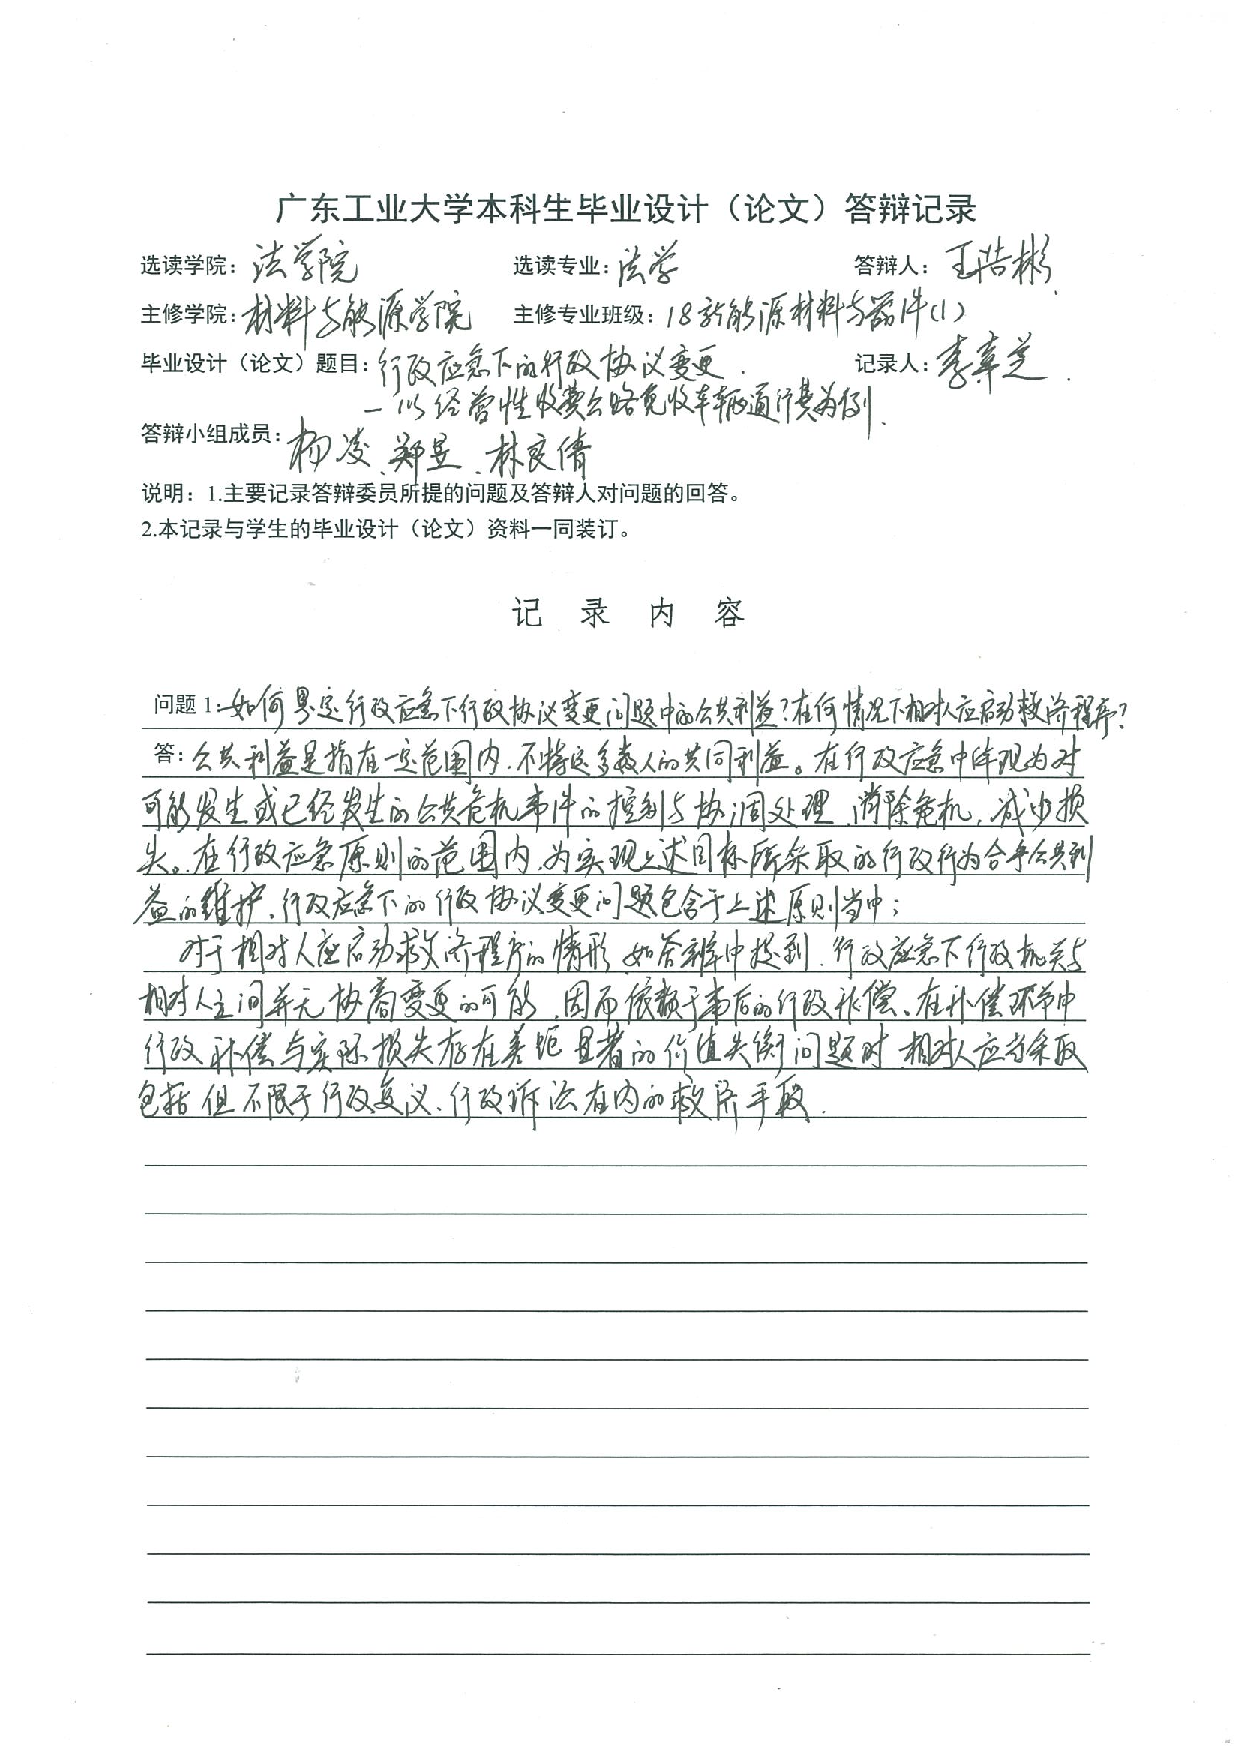 广东工业大学本科生毕业设计（论文）答辩记录
选读学院：法学院 选读专业：法学 答辩人：王浩彬
主修学院：材料与能源学院 主修专业班级：18新能源材料与器件(1)
毕业设计（论文）题目：行政应急下的行政协议变更 记录人：李幸芝
—以经营性收费公路免收车辆通行费为例
答辩小组成员：杨凌、郑昱、林良倩
说明：1.主要记录答辩委员所提的问题及答辩人对问题的回答。
2.本记录与学生的毕业设计（论文）资料一同装订。
记 录 内 容
问题1：如何界定行政应急下行政协议变更问题中的公共利益？在何情况下相对人应启动救济程序？
答：公共利益是指在一定范围内，不特定多数人的共同利益。在行政应急中体现为对
可能发生或已经发生的公共危机事件的控制与协调处理，消除危机，减少损
失。在行政应急原则的范围内，为实现上述目标所采取的行政行为合乎公共利
益的维护，行政应急下的行政协议变更问题包含于上述原则当中；
对于相对人应启动救济程序的情形，如答辩中提到，行政应急下行政机关与
相对人之间并无协商变更的可能，因而依赖于事后的行政补偿、在补偿环节中
行政补偿与实际损失存在差距显著的价值失衡问题时，相对人应当采取
包括但不限于行政复议、行政诉讼在内的救济手段.